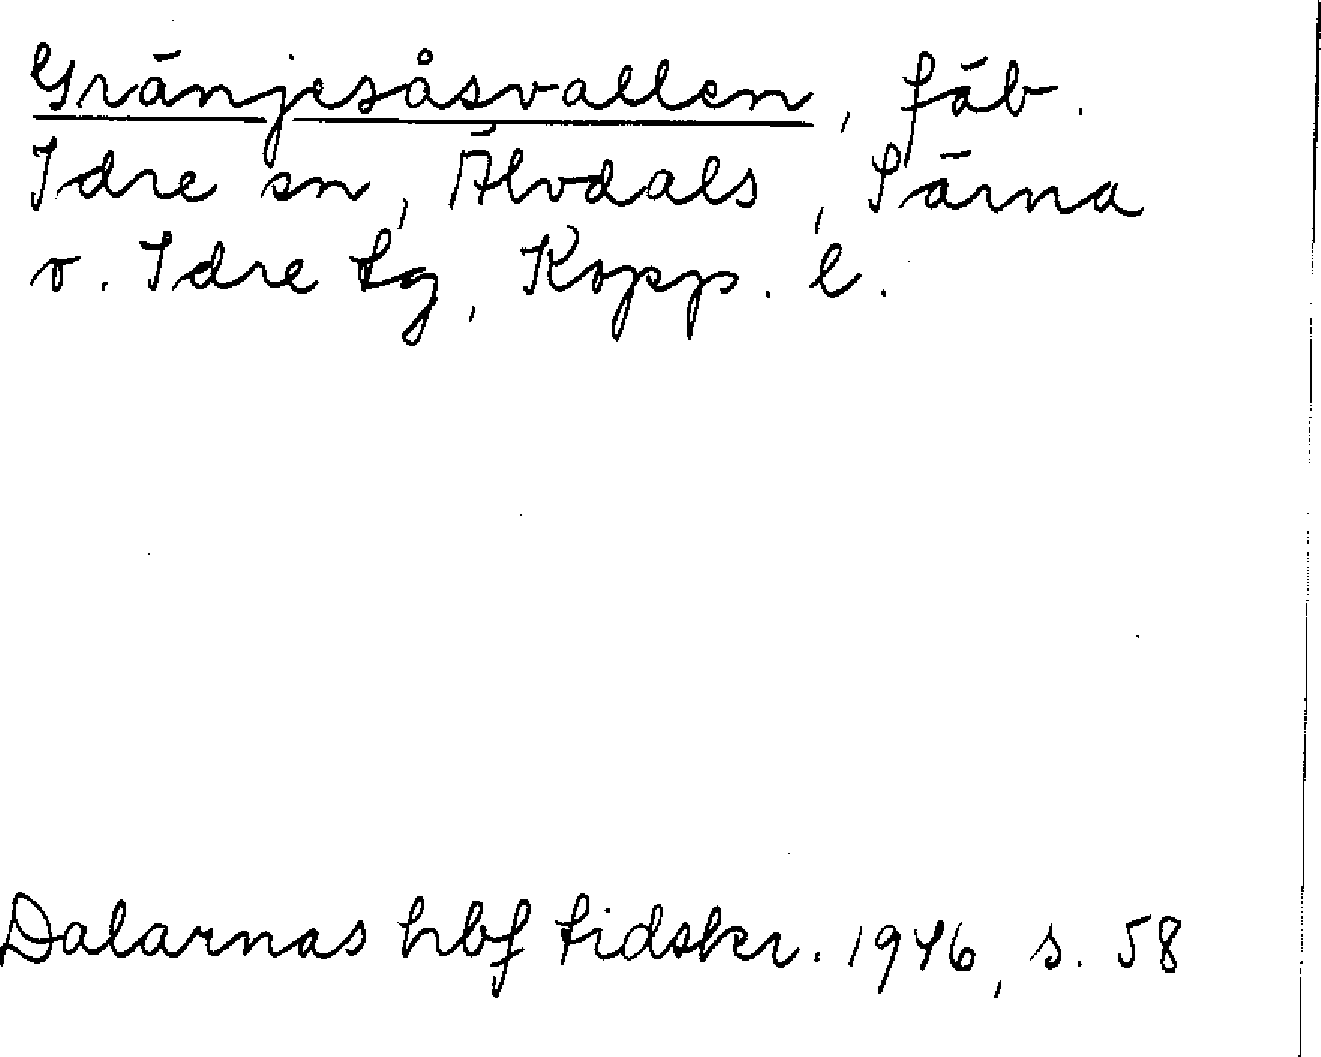 Gränjesåsvallen, fäb.
Idre sn, Älvdals, Särna
o. Idre tg, Kopp. l.
Dalarnas hbf tidskr. 1946, s. 58